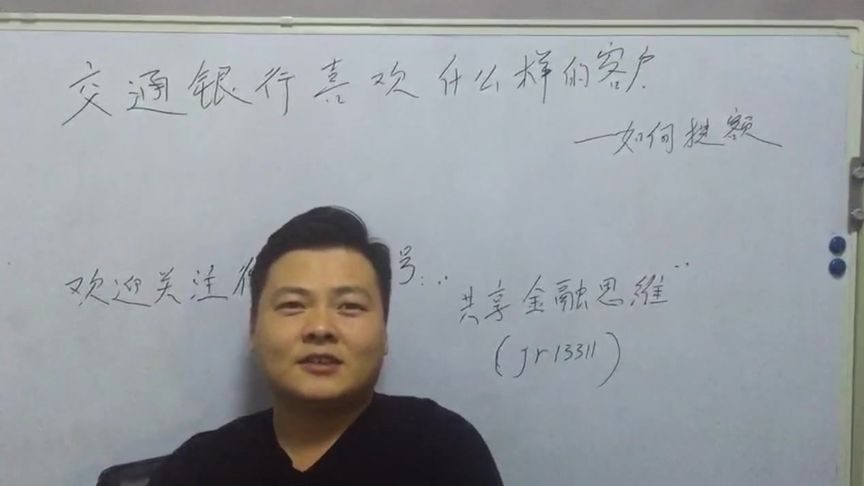 交通银行喜欢什么样的客户
—如何提额
欢迎关注 号:
共享金融思维"
(jr13311)